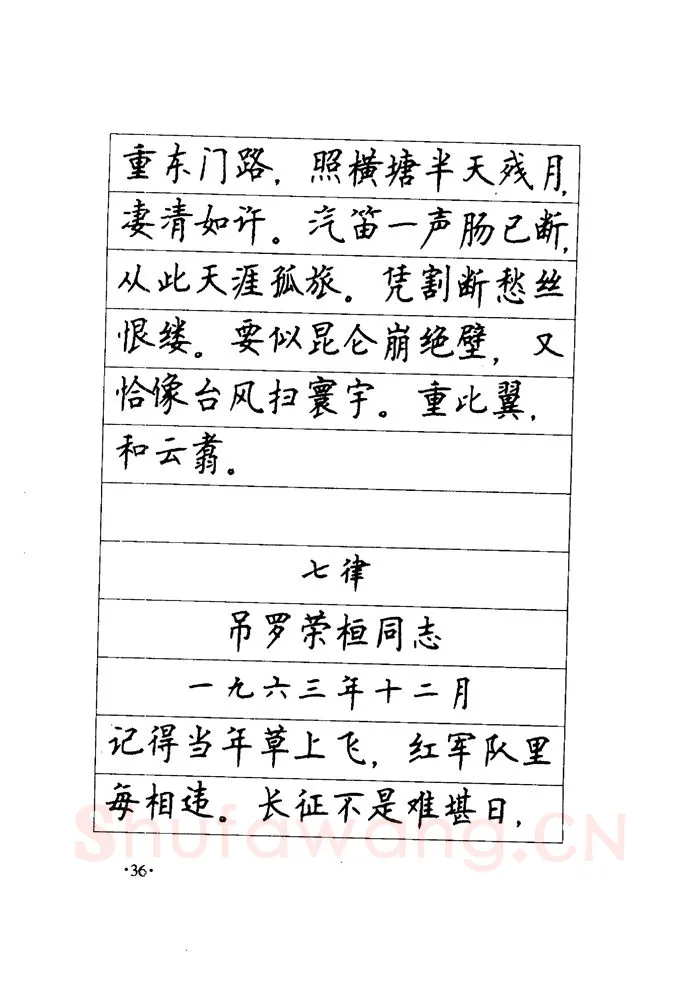 重东门路，照横塘半天残月，
凄清如许。汽笛一声肠已断，
从此天涯孤旅。凭割断愁丝
恨缕。要似昆仑崩绝壁，又
恰像台风扫寰宇。重比翼，
和云翥。
七律
吊罗荣桓同志
一九六三年十二月
记得当年草上飞，红军队里
每相违。长征不是难堪日，
Shufawang.CN
·36·